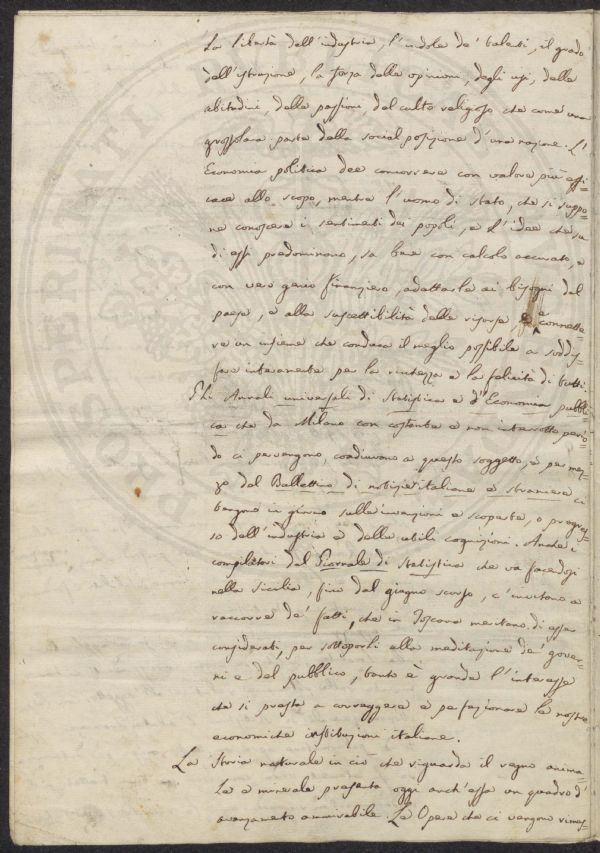 La libertà dell'industria, l'indole de' talenti, il grado
dell'istruzione, la forza delle opinioni, degli usi, delle
abitudini, delle passioni, del culto religioso che come una
parte della social posizione d'una nazione. L'
Economia politica dee concorrere con valore più effi=
cace allo scopo, mentre l'uomo di stato, che si suppo=
ne conoscere i sentimenti dei popoli, e l'idee che su
di essi predominano, sa bene con calcolo accurato, e
con vero genio finanziero, adattarle ai bisogni del
paese, e alla suscettibilità delle risorse, e connette=
re un insieme che conduca il meglio possibile a soddis=
fare interamente per la ricchezza e la felicità di tutti.
Gli Annali universali di Statistica e d'Economia pubbli=
ca che da Milano con costante e non interrotto perio=
do ci pervengono, coadiuvano a questo soggetto, e per mez=
zo del Bullettino di notizie italiane e straniere ci
tengono in giorno sulle invenzioni e scoperte, o progres=
so dell'industria e delle utili cognizioni. Anche i
compilatori del Giornale di Statistica che va facendosi
nella Sicilia, fino dal giugno scorso, c'invitano a
raccorre de' fatti, che in Toscana meritano di esser
considerati, per sottoporli alla meditazione de' gover=
ni e del pubblico, tanto è grande l'interesse
che si presta a correggere e perfezionare le nostre
economiche instituzioni italiane.
La Storia naturale in ciò che riguarda il regno anima=
le e minerale presenta oggi anch'essa un quadro d'
avanzamento ammirabile. Le Opere che ci vengono rimes=
PROSPERITATI